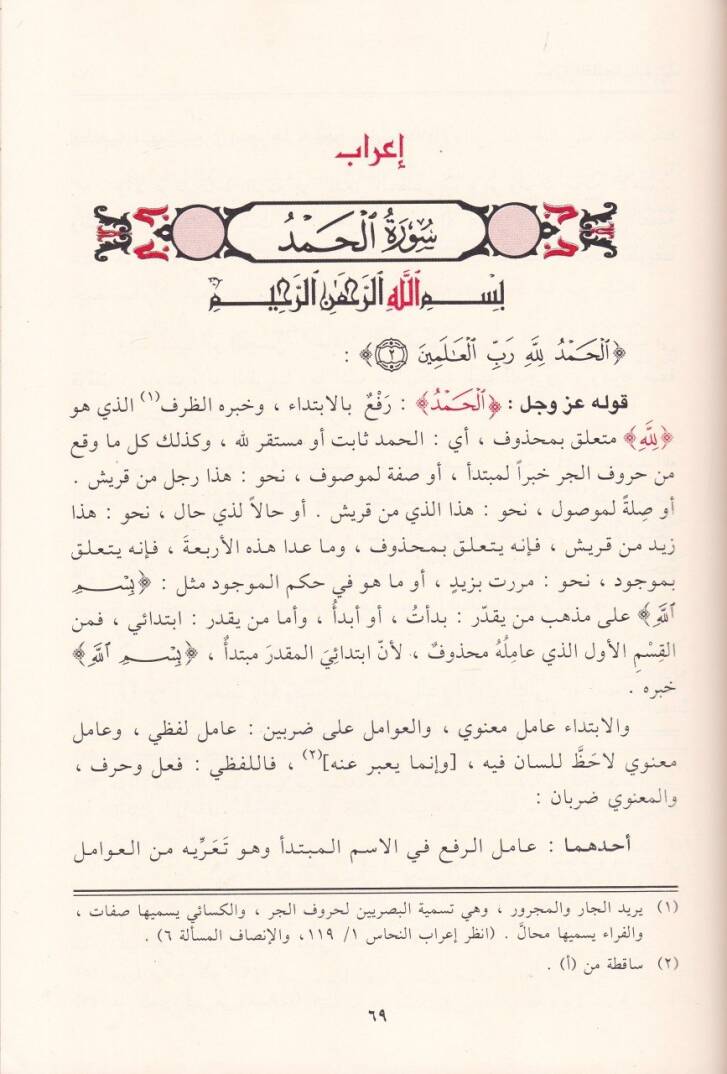 إعراب
سُورَةُ ٱلْحَمْدُ
بِسْمِ ٱللَّهِ ٱلرَّحْمَٰنِ ٱلرَّحِيمِ
﴿ٱلْحَمْدُ لِلَّهِ رَبِّ ٱلْعَٰلَمِينَ ٢﴾ :
قوله عز وجل : ﴿ٱلْحَمْدُ﴾ : رَفْعٌ بالابتداء ، وخبره الظرف(١) الذي هو
﴿لِلَّهِ﴾ متعلق بمحذوف ، أي : الحمد ثابت أو مستقر لله ، وكذلك كل ما وقع
من حروف الجر خبراً لمبتدأ ، أو صفة لموصوف ، نحو : هذا رجل من قريش .
أو صِلةً لموصول ، نحو : هذا الذي من قريش . أو حالاً لذي حال ، نحو : هذا
زيد من قريش ، فإنه يتعلق بمحذوف ، وما عدا هذه الأربعةَ ، فإنه يتعلق
بموجود ، نحو : مررت بزيدٍ ، أو ما هو في حكم الموجود مثل : ﴿بِسْمِ
ٱللَّهِ﴾ على مذهب من يقدّر : بدأتُ ، أو أبدأُ ، وأما من يقدر : ابتدائي ، فمن
القِسْمِ الأول الذي عامِلُهُ محذوفٌ ، لأنّ ابتدائيَ المقدرَ مبتدأٌ ، ﴿بِسْمِ ٱللَّهِ﴾
خبره .
والابتداء عامل معنوي ، والعوامل على ضربين : عامل لفظي ، وعامل
معنوي لاحَظَّ للسان فيه ، [وإنما يعبر عنه](٢) ، فاللفظي : فعل وحرف ،
والمعنوي ضربان :
أحدهما : عامل الرفع في الاسم المبتدأ وهو تَعَرِّيه من العوامل
(١) يريد الجار والمجرور ، وهي تسمية البصريين لحروف الجر ، والكسائي يسميها صفات ،
والفراء يسميها محالَّ . (انظر إعراب النحاس ١/ ١١٩، والإنصاف المسألة ٦) .
(٢) ساقطة من (أ) .
٦٩